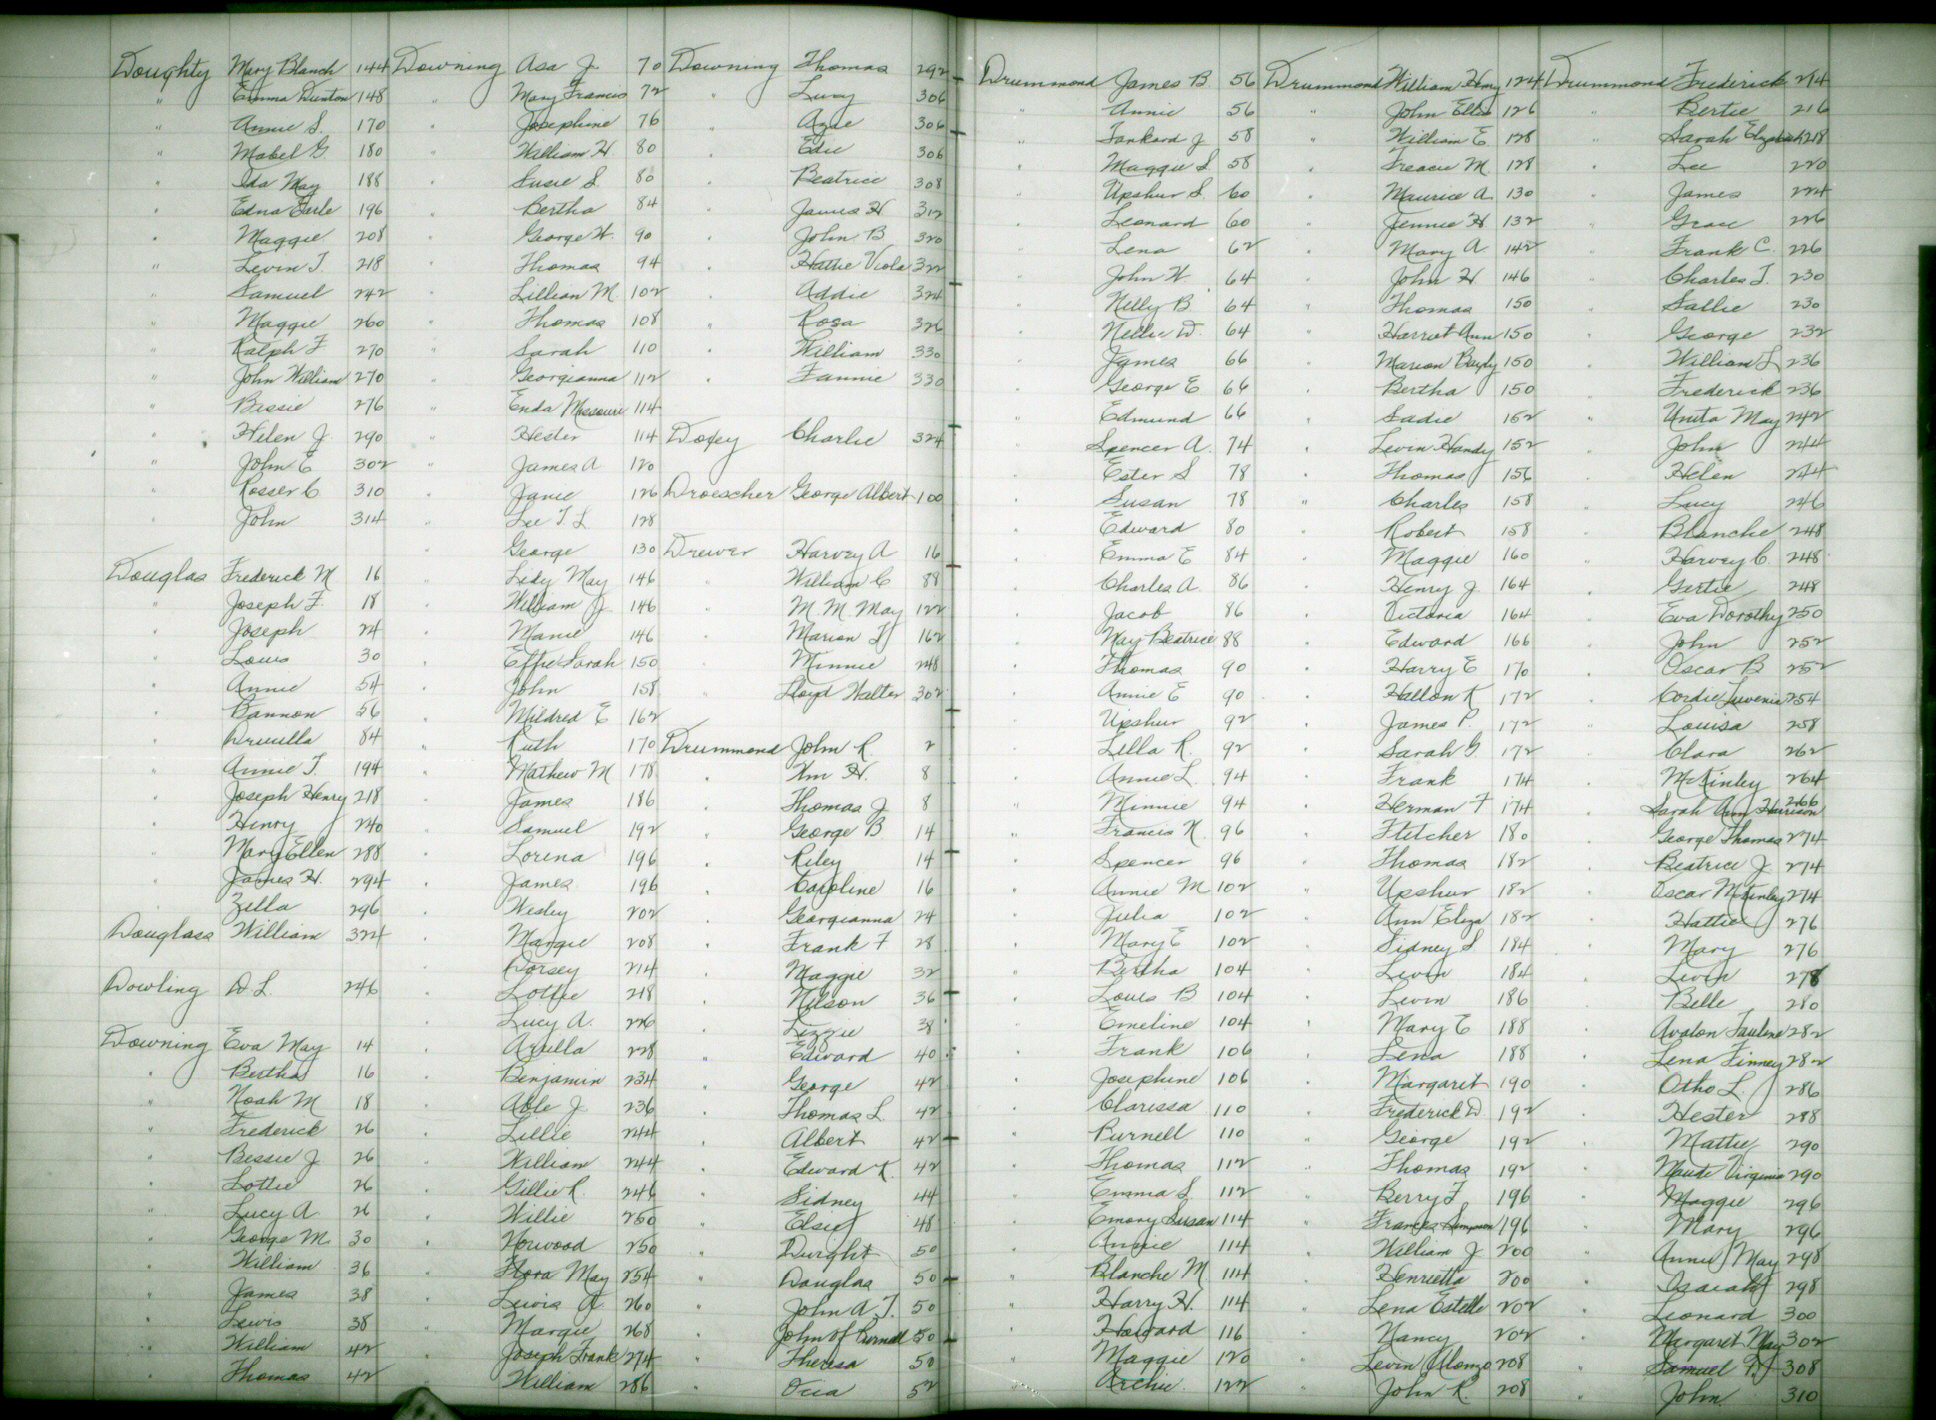 Doughty Mary Blanch 144
" Emma Dunton 148
" Annie S. 170
" Mabel G. 180
" Ida May 188
" Edna Earle 196
" Maggie 208
" Levin T. 218
" Samuel 242
" Maggie 260
" Ralph F 270
" John William 270
" Bessie 276
" Helen J 290
" John E 302
" Rosser C. 310
" John 314
Douglas Frederick M 16
" Joseph F. 18
" Joseph 24
" Louis 30
" Annie 54
" Bannon 56
" Drucilla 84
" Annie T. 194
" Joseph Henry 218
" Henry 240
" Mary Ellen 288
" James H. 294
" Zella 296
Douglass William 324
Dowling D. L. 246
Downing Eva May 14
" Bertha 16
" Noah M 18
" Frederick 26
" Bessie J 26
" Lottie 26
" Lucy A. 26
" George M. 30
" William 36
" James 38
" Lewis 38
" William 42
" Thomas 42
Downing Asa J. 70
" Mary Frances 72
" Josephine 76
" William H 80
" Susie S. 80
" Bertha 84
" George W. 90
" Thomas 94
" Lillian M. 102
" Thomas 108
" Sarah 110
" Georgianna 112
" Enda Missouri 114
" Hester 114
" James A 120
" Janie 126
" Lee T. L 128
" George 130
" Lidy May 146
" William J. 146
" Mamie 146
" Effie Sarah 150
" John 158
" Mildred E 162
" Ruth 170
" Mathew M 178
" James 186
" Samuel 192
" Lorena 196
" James 196
" Wesley 202
" Margie 208
" Dorsey 214
" Lottie 218
" Lucy A. 226
" Arella 228
" Benjamin 234
" Able J. 236
" Lillie 244
" William 244
" Gillie R. 246
" Willie 250
" Norwood 250
" Flora May 254
" Lewis A 260
" Margie 268
" Joseph Frank 274
" William 286
Downing Thomas 292
" Lucy 306
" Azie 306
" Edie 306
" Beatrice 308
" James H 312
" John B 320
" Hattie Viola 322
" Addie 324
" Rosa 326
" William 330
" Fannie 330
Doxey Charlie 324
Droescher George Albert 100
Drewer Harvey A 16
" William C 88
" M. M. May 122
" Marion T 162
" Minnie 248
" Lloyd Walter 302
Drummond John R. 2
" Wm H. 8
" Thomas J 8
" George B 14
" Riley 14
" Caroline 16
" Georgianna 24
" Frank F 28
" Maggie 32
" Nelson 36
" Lizzie 38
" Edward 40
" George 42
" Thomas L. 42
" Albert 42
" Edward K. 42
" Sidney 44
" Elsie 48
" Dwight 50
" Douglas 50
" John A. T. 50
" John of Burnell 50
" Theresa 50
" Ocia 52
Drummond James B. 56
" Annie 56
" Tankard J 58
" Maggie S 58
" Upshur S. 60
" Leonard 60
" Lena 62
" John W 64
" Nelly B 64
" Nellie D. 64
" James 66
" George E 66
" Edmund 66
" Spencer A. 74
" Ester S 78
" Susan 78
" Edward 80
" Emma E 84
" Charles A. 86
" Jacob 86
" May Beatrice 88
" Thomas 90
" Annie E 90
" Upshur 92
" Lilla R. 92
" Annie L. 94
" Minnie 94
" Francis N. 96
" Spencer 96
" Annie M 102
" Julia 102
" Mary E 102
" Bertha 104
" Louis B 104
" Emeline 104
" Frank 106
" Josephine 106
" Clarissa 110
" Burnell 110
" Thomas 112
" Emma S. 112
" Emory Susan 114
" Annie 114
" Blanche M. 114
" Harry H. 114
" Howard 116
" Maggie 120
" Archie 122
Drummond William Henry 124
" John Ellis 126
" William E 128
" Treacie M. 128
" Maurice A. 130
" Jennie H 132
" Mary A. 142
" John H 146
" Thomas 150
" Harriet Ann 150
" Marion Bayly 150
" Bertha 150
" Sadie 152
" Levin Handy 152
" Thomas 156
" Charles 158
" Robert 158
" Maggie 160
" Henry J 164
" Victoria 164
" Edward 166
" Harry E 170
" Hallon K 172
" James P. 172
" Sarah G. 172
" Frank 174
" Herman F 174
" Fletcher 180
" Thomas 182
" Upshur 182
" Ann Eliza 182
" Sidney S. 184
" Levin 184
" Levin 186
" Mary E 188
" Lena 188
" Margaret 190
" Frederick D. 192
" George 192
" Thomas 192
" Berry F 196
" Frances Simpson 196
" William J. 200
" Henrietta 200
" Lena Estelle 202
" Nancy 202
" Levin Alonzo 208
" John R 208
Drummond Frederick 214
" Bertie 216
" Sarah Elizabeth 218
" Lee 220
" James 224
" Grace 226
" Frank C. 226
" Charles T. 230
" Sallie 230
" George 232
" William L 236
" Frederick 236
" Unita May 242
" John 244
" Helen 244
" Lucy 246
" Blanche 248
" Harvey C. 248
" Gertie 248
" Eva Dorothy 250
" John 252
" Oscar B 252
" Cordie Luvenia 254
" Louisa 258
" Clara 262
" McKinley 264
" Sarah Ann Harrison 266
" George Thomas 274
" Beatrice J. 274
" Oscar McKinley 274
" Hattie 276
" Mary 276
" Levin 278
" Belle 280
" Avalon Pauline 282
" Lena Finney 282
" Otho L. 286
" Hester 288
" Mattie 290
" Maude Virginia 290
" Maggie 296
" Mary 296
" Annie May 298
" Isaiah 298
" Leonard 300
" Margaret May 302
" Samuel 308
" John 310